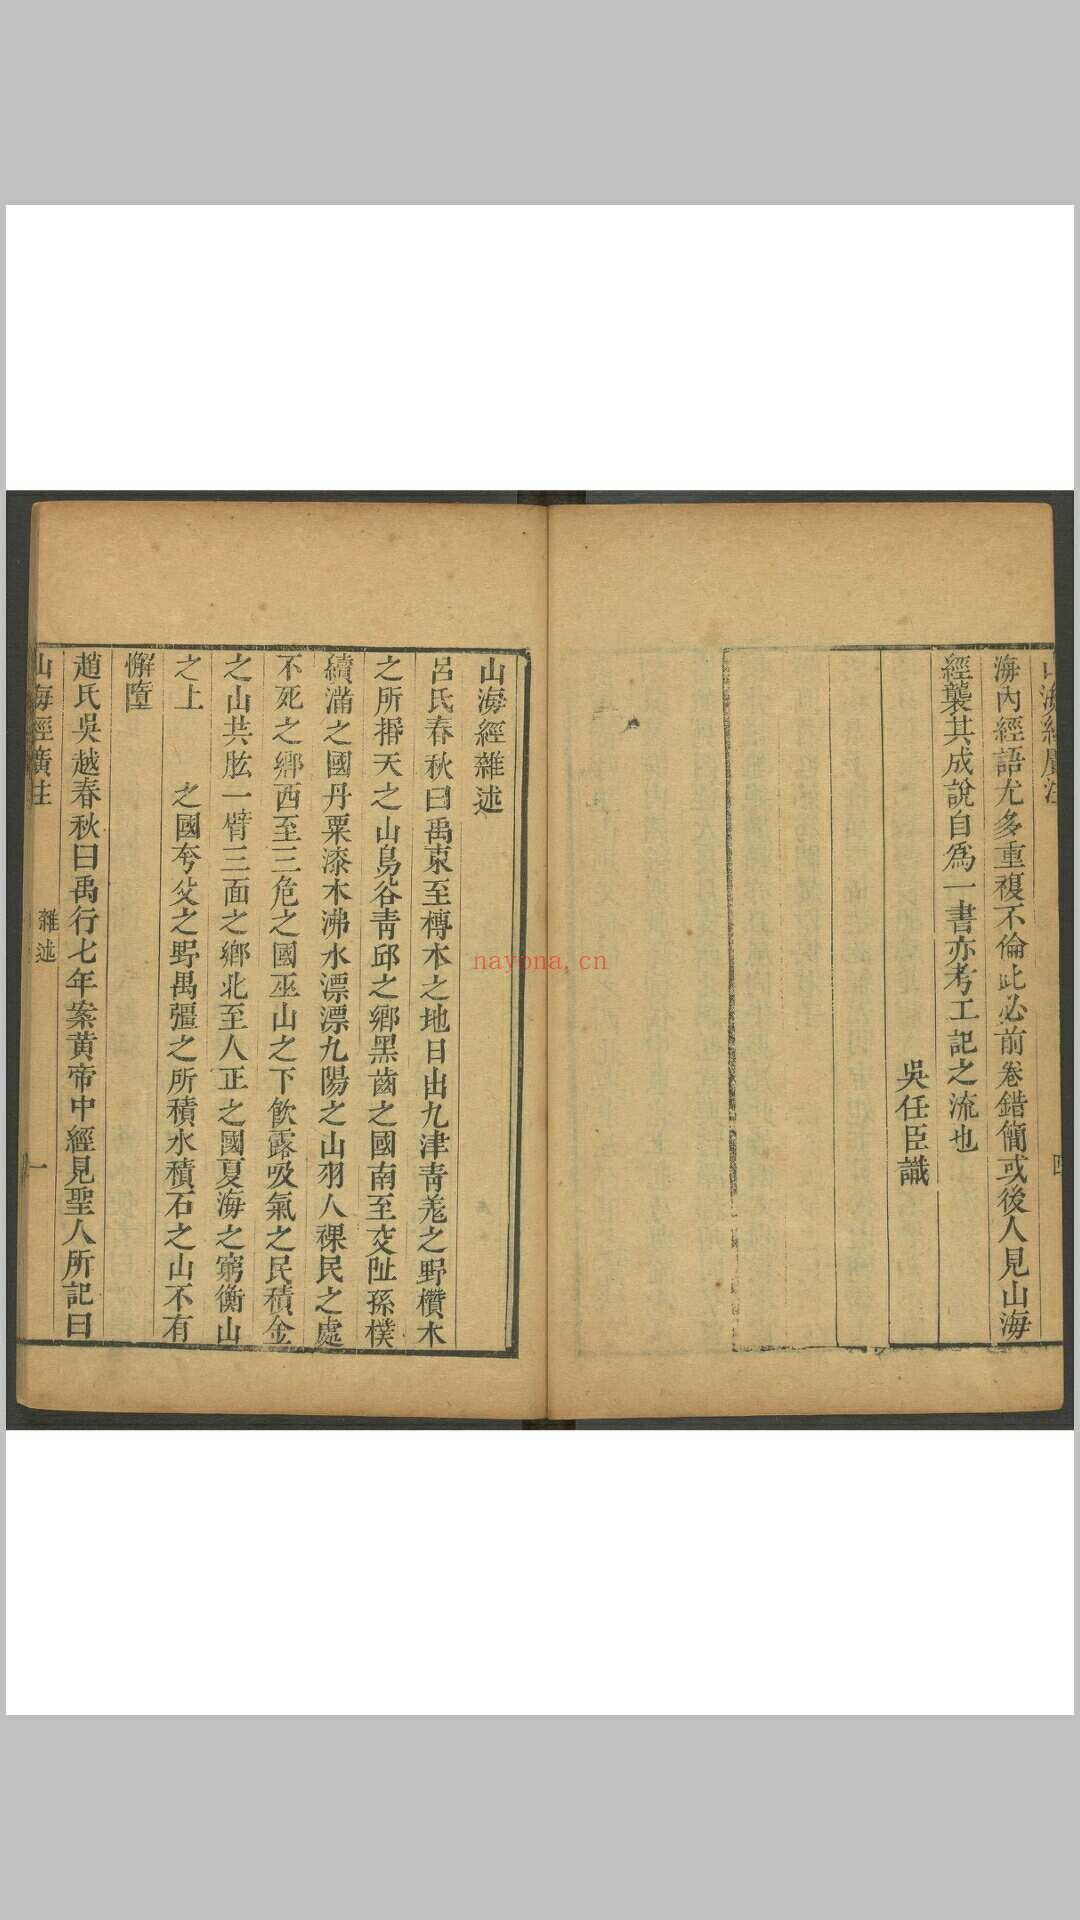 海內經語尤多重複不倫此必前卷錯簡或後人見山海
經襲其成說自爲一書亦考工記之流也
吳任臣識
四
山海經雜述
呂氏春秋曰禹東至榑木之地日出九津青羗之野欑木
之所搢天之山鳥谷青邱之鄉黑齒之國南至交阯孫樸
續滿之國丹粟漆木沸水漂漂九陽之山羽人裸民之處
不死之鄉西至三危之國巫山之下飲露吸氣之民積金
之山共肱一臂三面之鄉北至人正之國夏海之窮衡山
之上 之國夸父之野禺彊之所積水積石之山不有
懈墮
趙氏吳越春秋曰禹行七年案黄帝中經見聖人所記曰
山海經廣注 雜述 一
nayona.cn